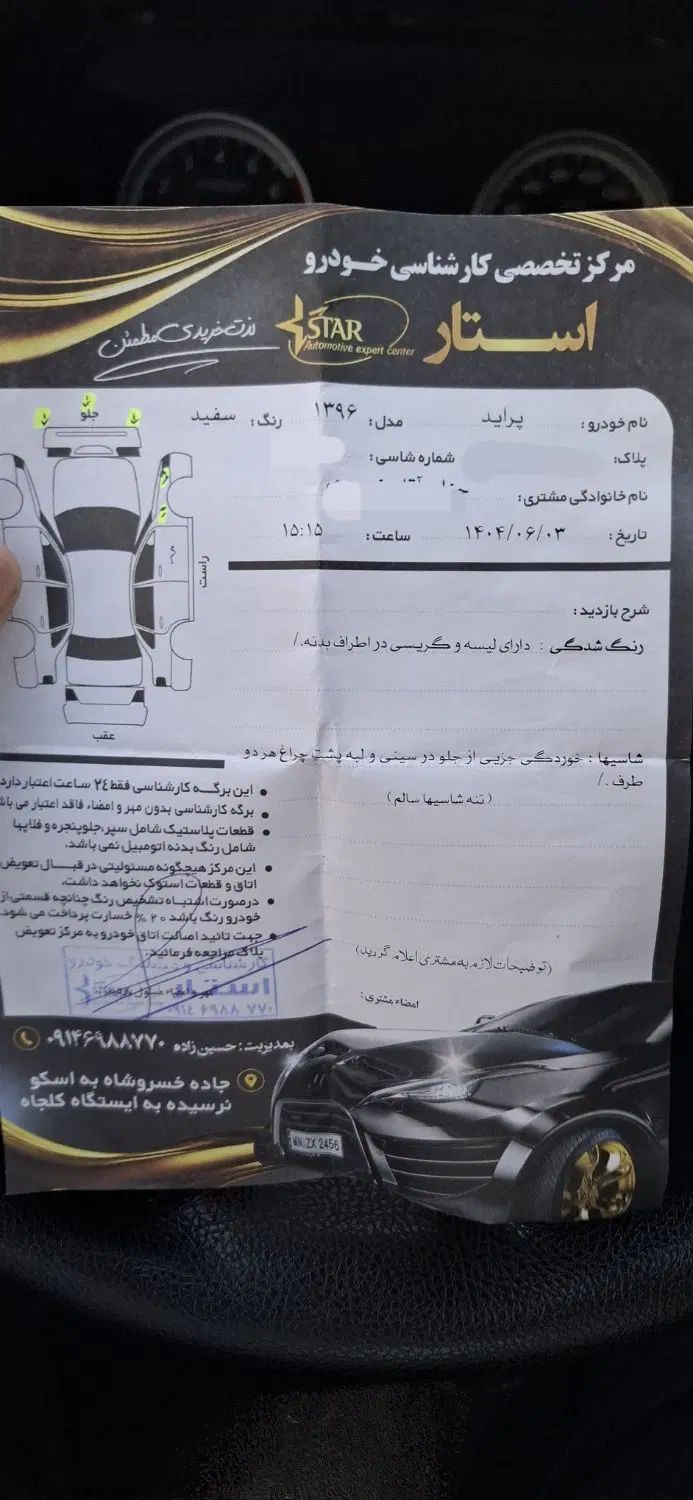 مرکز تخصصی کارشناسی خودرو
استار
STAR
Automotive expert center
لذت خریدی مطمئن
نام خودرو : پراید مدل : ۱۳۹۶ رنگ : سفید
پلاک: شماره شاسی :
نام خانوادگی مشتری :
تاریخ : ۱۴۰۴/۰۶/۰۳ ساعت : ۱۵:۱۵
جلو
راست
عقب
شرح بازدید :
رنگ شدگی : دارای لیسه و گریسی در اطراف بدنه./
شاسیها : خوردگی جزیی از جلو در سینی و لبه پشت چراغ هر دو
طرف ./
( تنه شاسیها سالم )
این برگه کارشناسی فقط ۲۴ ساعت اعتبار دارد
برگه کارشناسی بدون مهر و امضاء فاقد اعتبار می باش
قطعات پلاستیک شامل سپر،جلوپنجره و فلاپها
شامل رنگ بدنه اتومبیل نمی باشد.
این مرکز هیچگونه مسئولیتی در قبال تعویض
اتاق و قطعات استوک نخواهد داشت.
درصورت اشتباه تشخیص رنگ چنانچه قسمتی از
خودرو رنگ باشد ۲۰% خسارت پرداخت می شود.
جهت تائید اصالت اتاق خودرو به مرکز تعویض
پلاک مراجعه فرمائید.
(توضیحات لازم به مشتری اعلام گردید)
امضاء مشتری :
کارشناسی و رنگ خودرو
استار
۰۹۱۴ ۶۹۸۸ ۷۷۰
بمدیریت : حسین زاده ۰۹۱۴۶۹۸۸۷۷۰
جاده خسروشاه به اسکو
نرسیده به ایستگاه کلجاه
MN ZX 2456